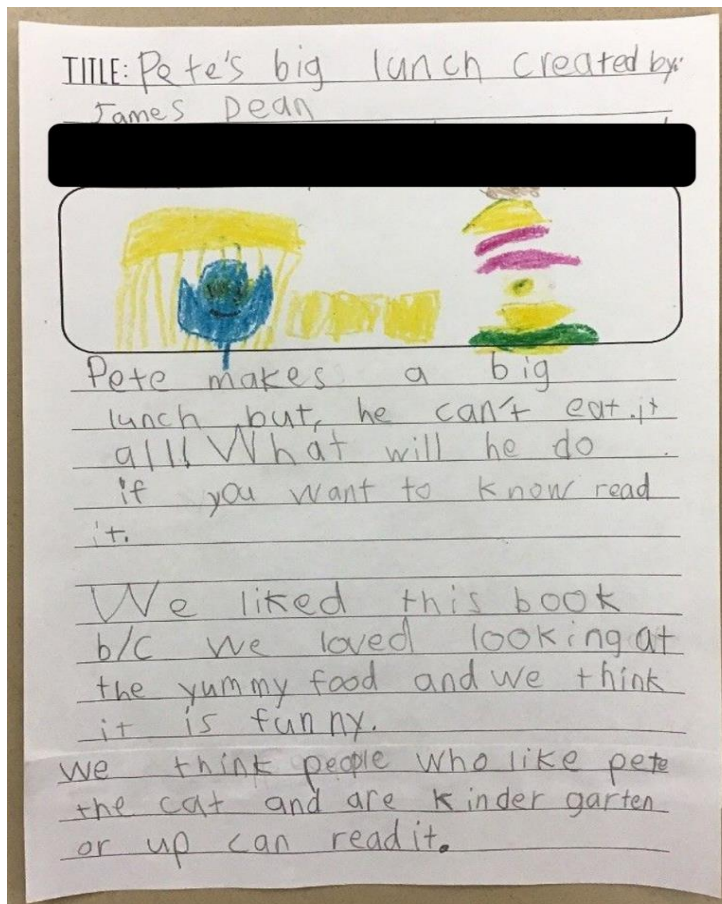 TITLE: Pete's big lunch created by:
James Dean
Pete makes a big
lunch but, he can't eat it
all! What will he do
if you want to know read
it.
We liked this book
b/c we loved looking at
the yummy food and we think
it is funny.
we think people who like pete
the cat and are kinder garten
or up can read it.